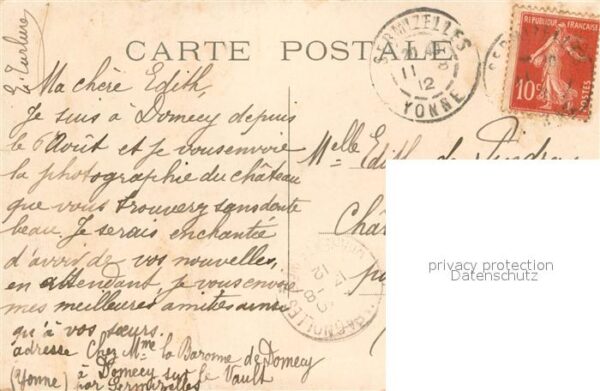 CARTE POSTALE
SERMIZELLES
11 8
12
YONNE
RÉPUBLIQUE FRANÇAISE
10c
POSTES
Ma chère Edith,
Je suis à Domecy depuis
le 6 Août et je vous envoie
la photographie du château
que vous trouverez sans doute
beau. Je serais enchantée
d'avoir de vos nouvelles,
en attendant, je vous envoie
mes meilleures amitiés ainsi
qu'à vos sœurs.
adresse Chez Mme la Baronne de Domecy
à Domecy sur le Vault
(Yonne) par Sermizelles
Melle Edith de
Châ
privacy protection
Datenschutz